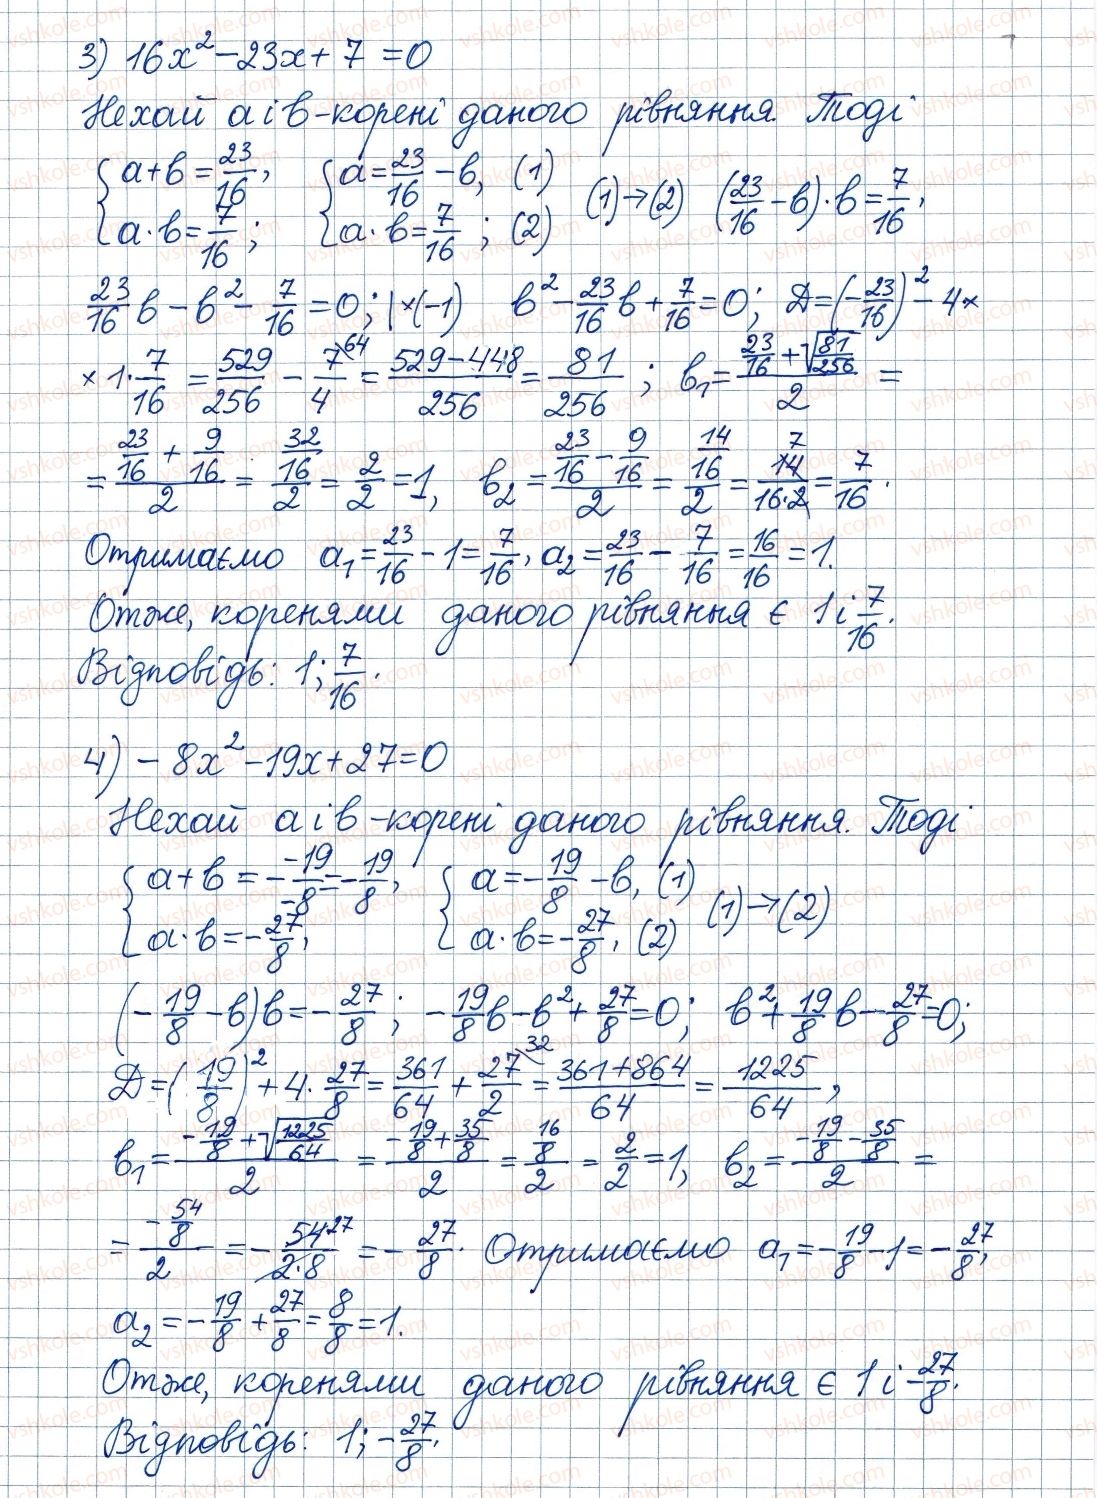 3) 16x² − 23x + 7 = 0
Нехай a і b - корені даного рівняння. Тоді
{ a + b = 23/16, a · b = 7/16; { a = 23/16 − b, (1) a · b = 7/16; (2) (1) → (2) (23/16 − b) · b = 7/16,
23/16 b − b² − 7/16 = 0; | ×(−1) b² − 23/16 b + 7/16 = 0; Д = (−23/16)² − 4 ×
× 1 · 7/16 = 529/256 − 7/4 \64 = (529 − 448)/256 = 81/256; b₁ = (23/16 + √(81/256))/2 =
= (23/16 + 9/16)/2 = (32/16)/2 = 2/2 = 1, b₂ = (23/16 − 9/16)/2 = (14/16)/2 = 14 7/(16·2) = 7/16.
Отримаємо a₁ = 23/16 − 1 = 7/16, a₂ = 23/16 − 7/16 = 16/16 = 1.
Отже, коренями даного рівняння є 1 і 7/16.
Відповідь: 1; 7/16.
4) − 8x² − 19x + 27 = 0
Нехай a і b - корені даного рівняння. Тоді
{ a + b = − −19/−8 = −19/8, a · b = −27/8, { a = −19/8 − b, (1) a · b = −27/8, (2) (1) → (2)
(−19/8 − b) b = −27/8; −19/8 b − b² + 27/8 = 0; b² + 19/8 b − 27/8 = 0;
Д = (19/8)² + 4 · 27/8 = 361/64 + 27/2 \32 = (361 + 864)/64 = 1225/64,
b₁ = (−19/8 + √(1225/64))/2 = (−19/8 + 35/8)/2 = (16/8)/2 = 2/2 = 1, b₂ = (−19/8 − 35/8)/2 =
= (−54/8)/2 = −54 27/(2·8) = −27/8. Отримаємо a₁ = −19/8 − 1 = −27/8,
a₂ = −19/8 + 27/8 = 8/8 = 1.
Отже, коренями даного рівняння є 1 і −27/8.
Відповідь: 1; −27/8.
vshkole.com